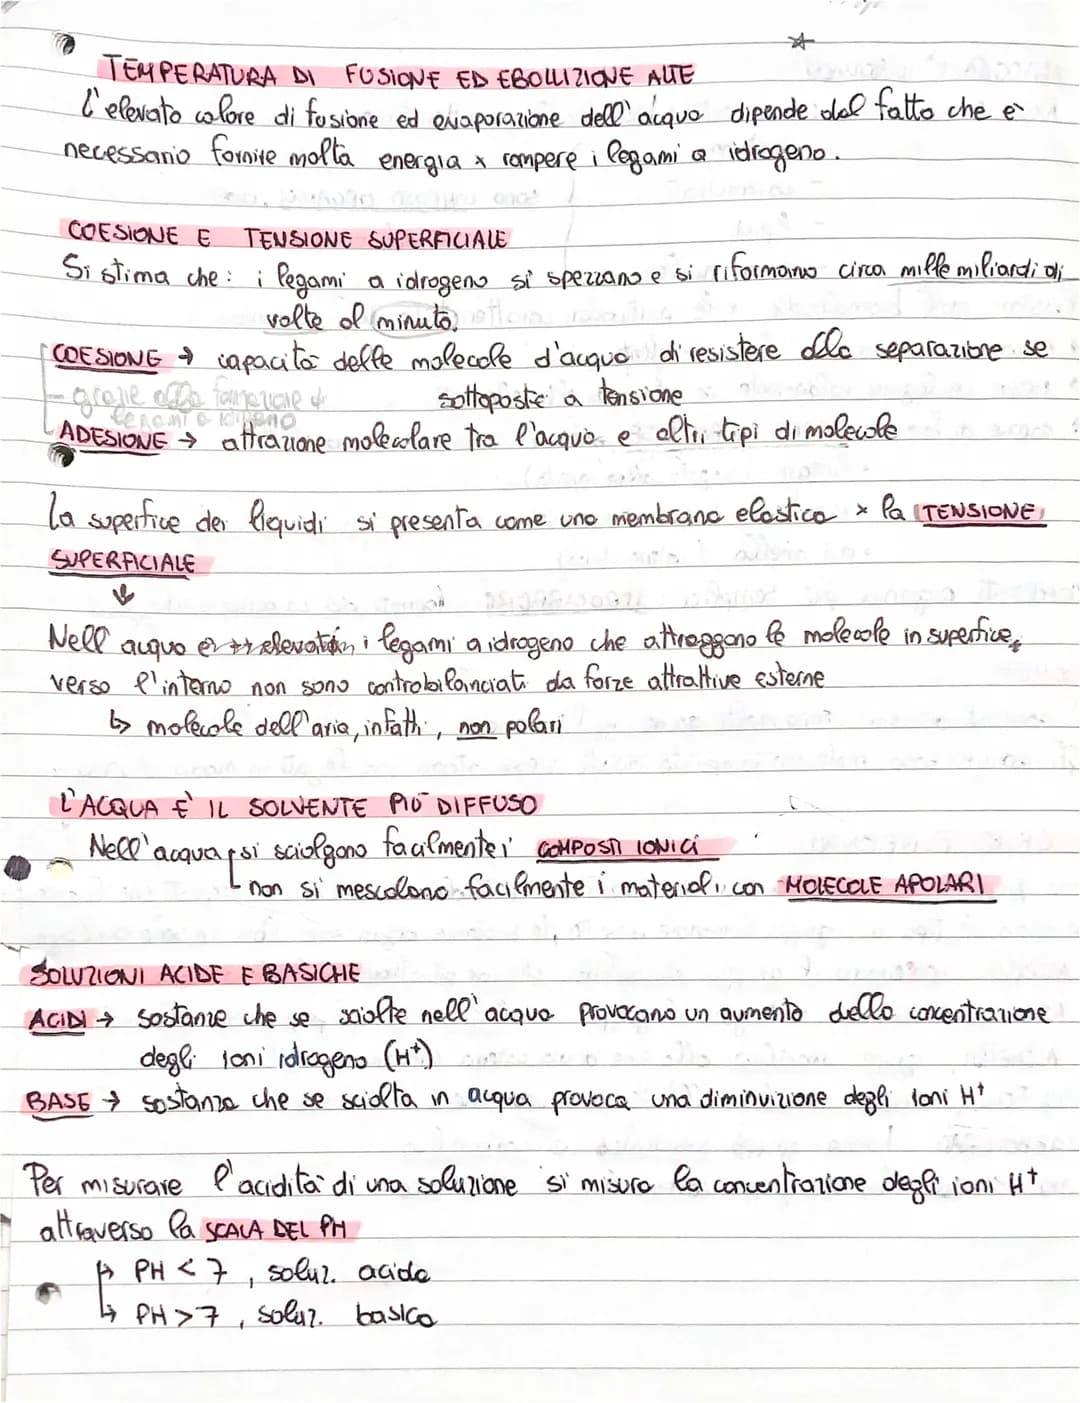 TEMPERATURA DI FUSIONE ED EBOLLIZIONE ALTE
L'elevato calore di fusione ed evaporazione dell'acqua dipende dal fatto che è
necessario fornire molta energia x rompere i legami a idrogeno.
COESIONE E TENSIONE SUPERFICIALE
Si stima che: i legami a idrogeno si spezzano e si riformano circa mille miliardi di
volte al minuto.
COESIONE → capacità delle molecole d'acqua di resistere alla separazione se
sottoposte a tensione
- grazie alla formazione di
legami a idrogeno
ADESIONE → attrazione molecolare tra l'acqua e altri tipi di molecole
La superfice dei liquidi si presenta come una membrana elastica x la TENSIONE
SUPERFICIALE
Nell acqua i legami a idrogeno che attraggono le molecole in superfice,
verso l'interno non sono controbilanciati da forze attrattive esterne
↳ molecole dell'aria, infatti, non polari
L'ACQUA E' IL SOLVENTE PIÙ DIFFUSO
Nell'acqua si sciolgono facilmente i COMPOSTI IONICI
non si mescolano facilmente i materiali con MOLECOLE APOLARI
SOLUZIONI ACIDE E BASICHE
ACIDI → sostanze che se sciolte nell'acqua provocano un aumento della concentrazione
degli ioni idrogeno (H⁺)
BASE → sostanza che se sciolta in acqua provoca una diminuizione degli ioni H⁺
Per misurare l'acidità di una soluzione si misura la concentrazione degli ioni H⁺
attraverso la SCALA DEL PH
↳ PH < 7, soluz. acida
↳ PH > 7, soluz. basica